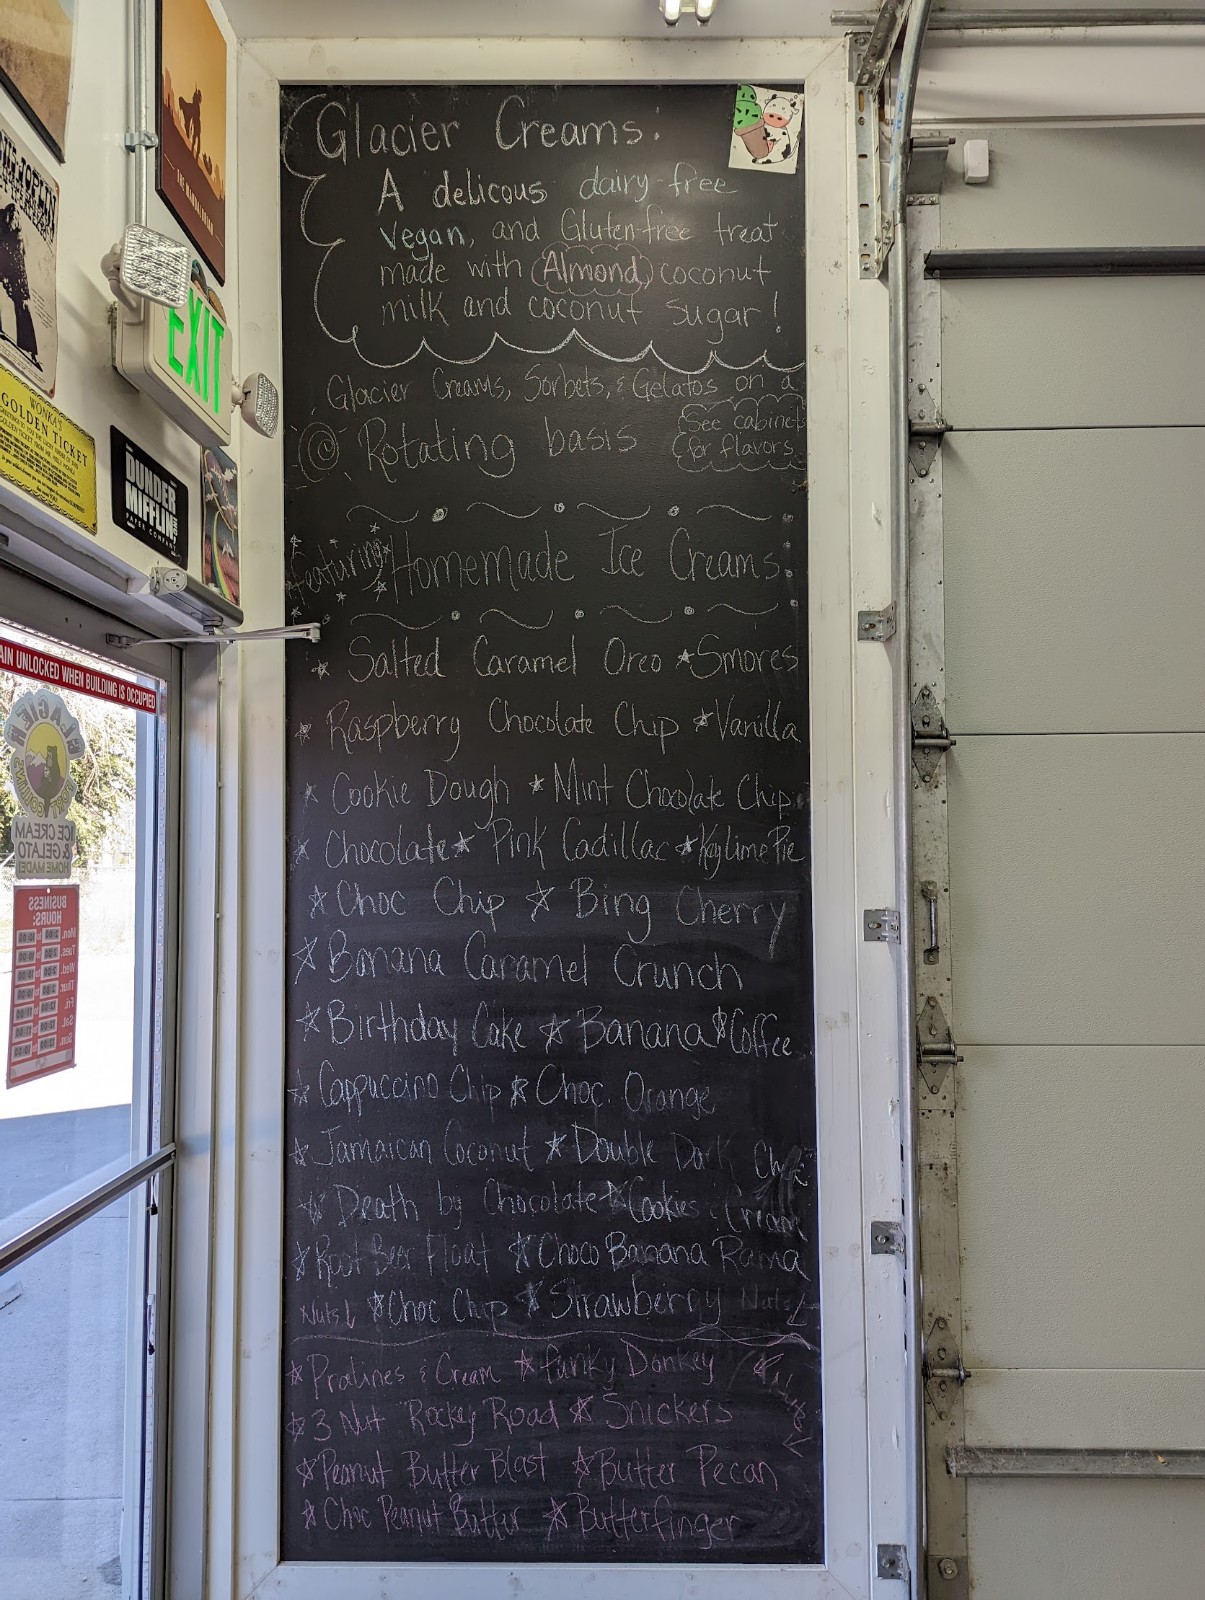 Glacier Creams:
A delicous dairy-free
vegan, and Gluten-free treat
made with (Almond) coconut
milk and coconut sugar!
Glacier Creams, Sorbets, & Gelatos on a
@ Rotating basis
See cabinet
for flavors
Featuring Homemade Ice Creams:
Salted Caramel Oreo Smores
Raspberry Chocolate Chip Vanilla
Cookie Dough Mint Chocolate Chip
Chocolate Pink Cadillac Key lime Pie
Choc Chip Bing Cherry
Banana Caramel Crunch
Birthday Cake Banana Coffee
Cappuccino Chip Choc. Orange
Jamaican Coconut Double Dark
Death by Chocolate Cookies & Cream
Root Beer Float Choco Banana Rama
Nuts↓ Choc Chip Strawberry Nuts
Pralines & Cream funky Donkey
3 Nut Rockey Road Snickers
Peanut Butter Blast Butter Pecan
Choc Peanut Butter Butterfinger
THE MANDALORIAN
EXIT
WONKA'S
GOLDEN TICKET
DUNDER
MIFFLIN
PAPER COMPANY
AIN UNLOCKED WHEN BUILDING IS OCCUPIED
GLACIER
ICE CREAM
& GELATO
HOMEMADE!
BUSINESS
HOURS:
Mon.
Tues.
Wed.
Thur.
Fri.
Sat.
Sun.